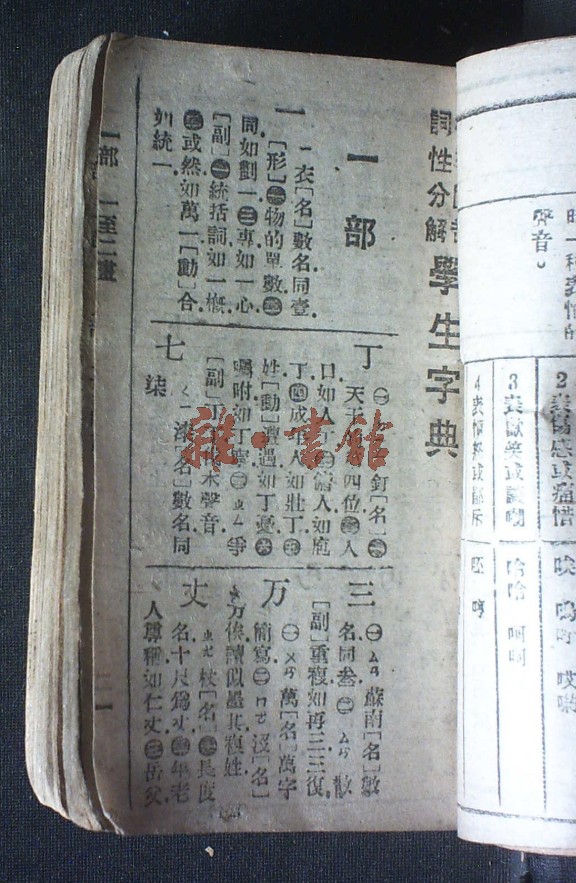 詞性分解 學生字典
一部
一 衣[名]數名同壹
[形]物的單數
同如劃一㊂專如一心
[副]統括詞如一概
或然如萬一[動]合
如統一
丁
天干第四位 人
口如人丁
丁㊃成年人如壯丁
姓[動]遭遇如丁憂
囑咐如丁寧㊁ㄓㄥ爭
[副]丁丁伐木聲音
七 ㄑㄧ漆[名]數名同
柒
三 ㊀ㄙㄢ蘇南[名]數
名同叁㊁ㄙㄢ散
[副]重複如再三三復
万 ㊀ㄨㄢ萬[名]萬字
簡寫㊁ㄇㄛ沒[名]
万俟讀似墨其複姓
丈 ㄓㄤ杖[名]長度
名十尺爲丈 年老
人尊稱如仁丈㊂岳父
一部 一至二畫
雜·書館
聲音
2 表傷感或痛惜
唉 嗚呼 哎喲
3 表歡笑或譏嘲
哈哈 呵呵
4 表憤怒或鄙斥
呸 哼